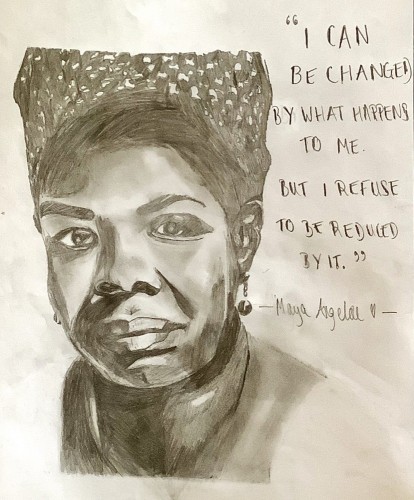 “I CAN
BE CHANGED
BY WHAT HAPPENS
TO ME.
BUT I REFUSE
TO BE REDUCED
BY IT.”
— Maya Angelou ♥ —